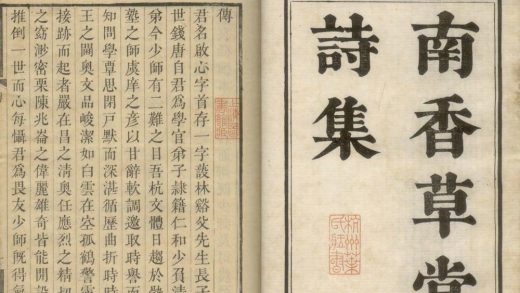 南香草堂
詩集
杭州葉氏藏書
傳
君名啟心字首存一字蔎林谿父先生長子
世錢唐自君為學官弟子隸籍仁和少負清
弟今少師有二難之目吾杭文體日趨於骫
之師虞庠之彥以甘辭軟調邀取時譽而
知問學覃思閉戶默而深湛循歷曲折時時
王之閫奧文品峻潔如白雲在空孤鶴警
接跡而起者嚴在昌之清奧任應烈之精切
之窈渺密栗陳兆崙之偉麗雄奇皆能開設
推倒一世而心每懾君為畏友少師既得氣